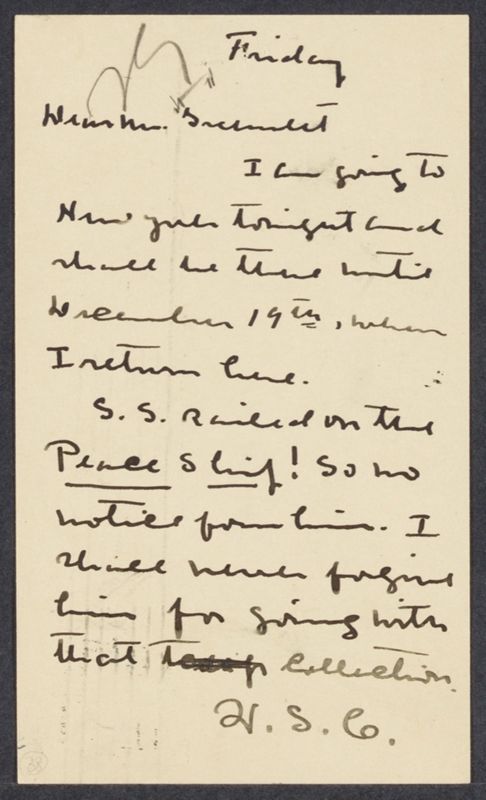 Friday
Dear Mr.
I am going to
New York tonight and
shall be there until
December 19th, when
I return here.
S. S. sailed on the
Peace Ship! So no
notice from him. I
shall never forgive
him for going with
that collection.
H. S. C.